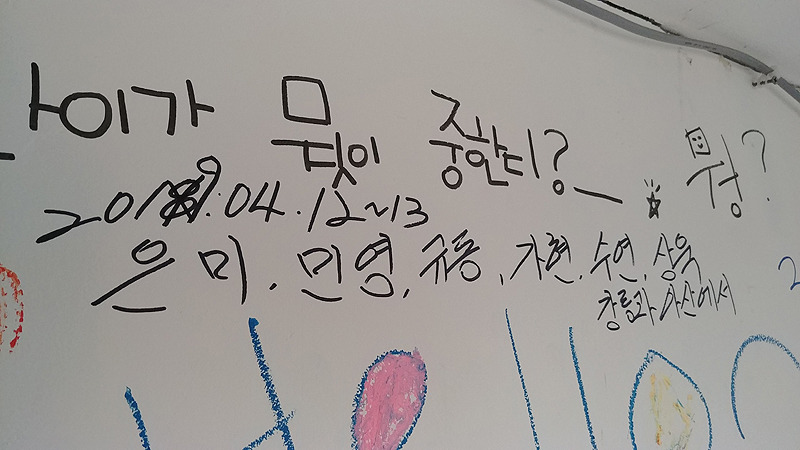 나이가 뭣이 중한디? 뭥?
2019.04.12~13
은미, 민영, 가현, 수연, 상욱
아산에서